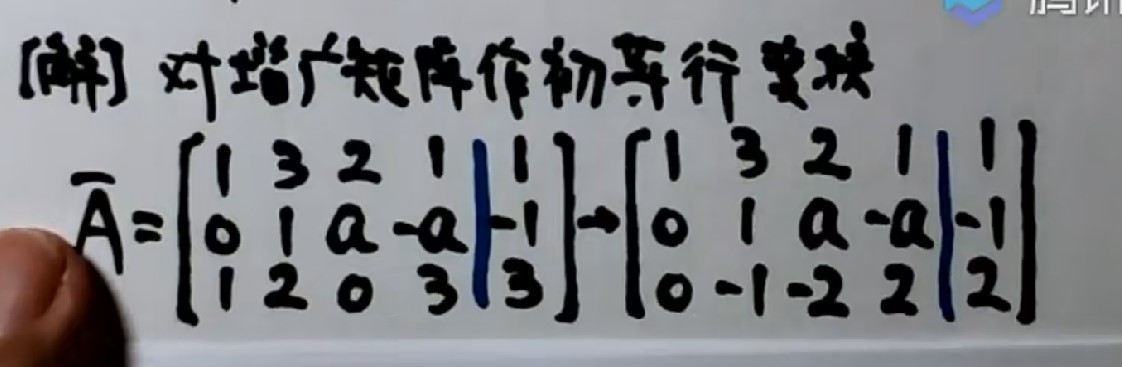 腾讯
[解] 对增广矩阵作初等行变换
A̅ = [1 3 2 1 | 1; 0 1 a -a | -1; 1 2 0 3 | 3] → [1 3 2 1 | 1; 0 1 a -a | -1; 0 -1 -2 2 | 2]